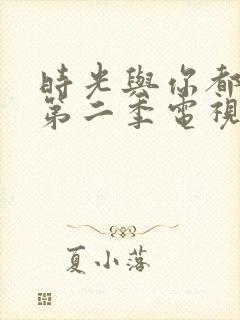 時光與你都
第二季電視
夏小落